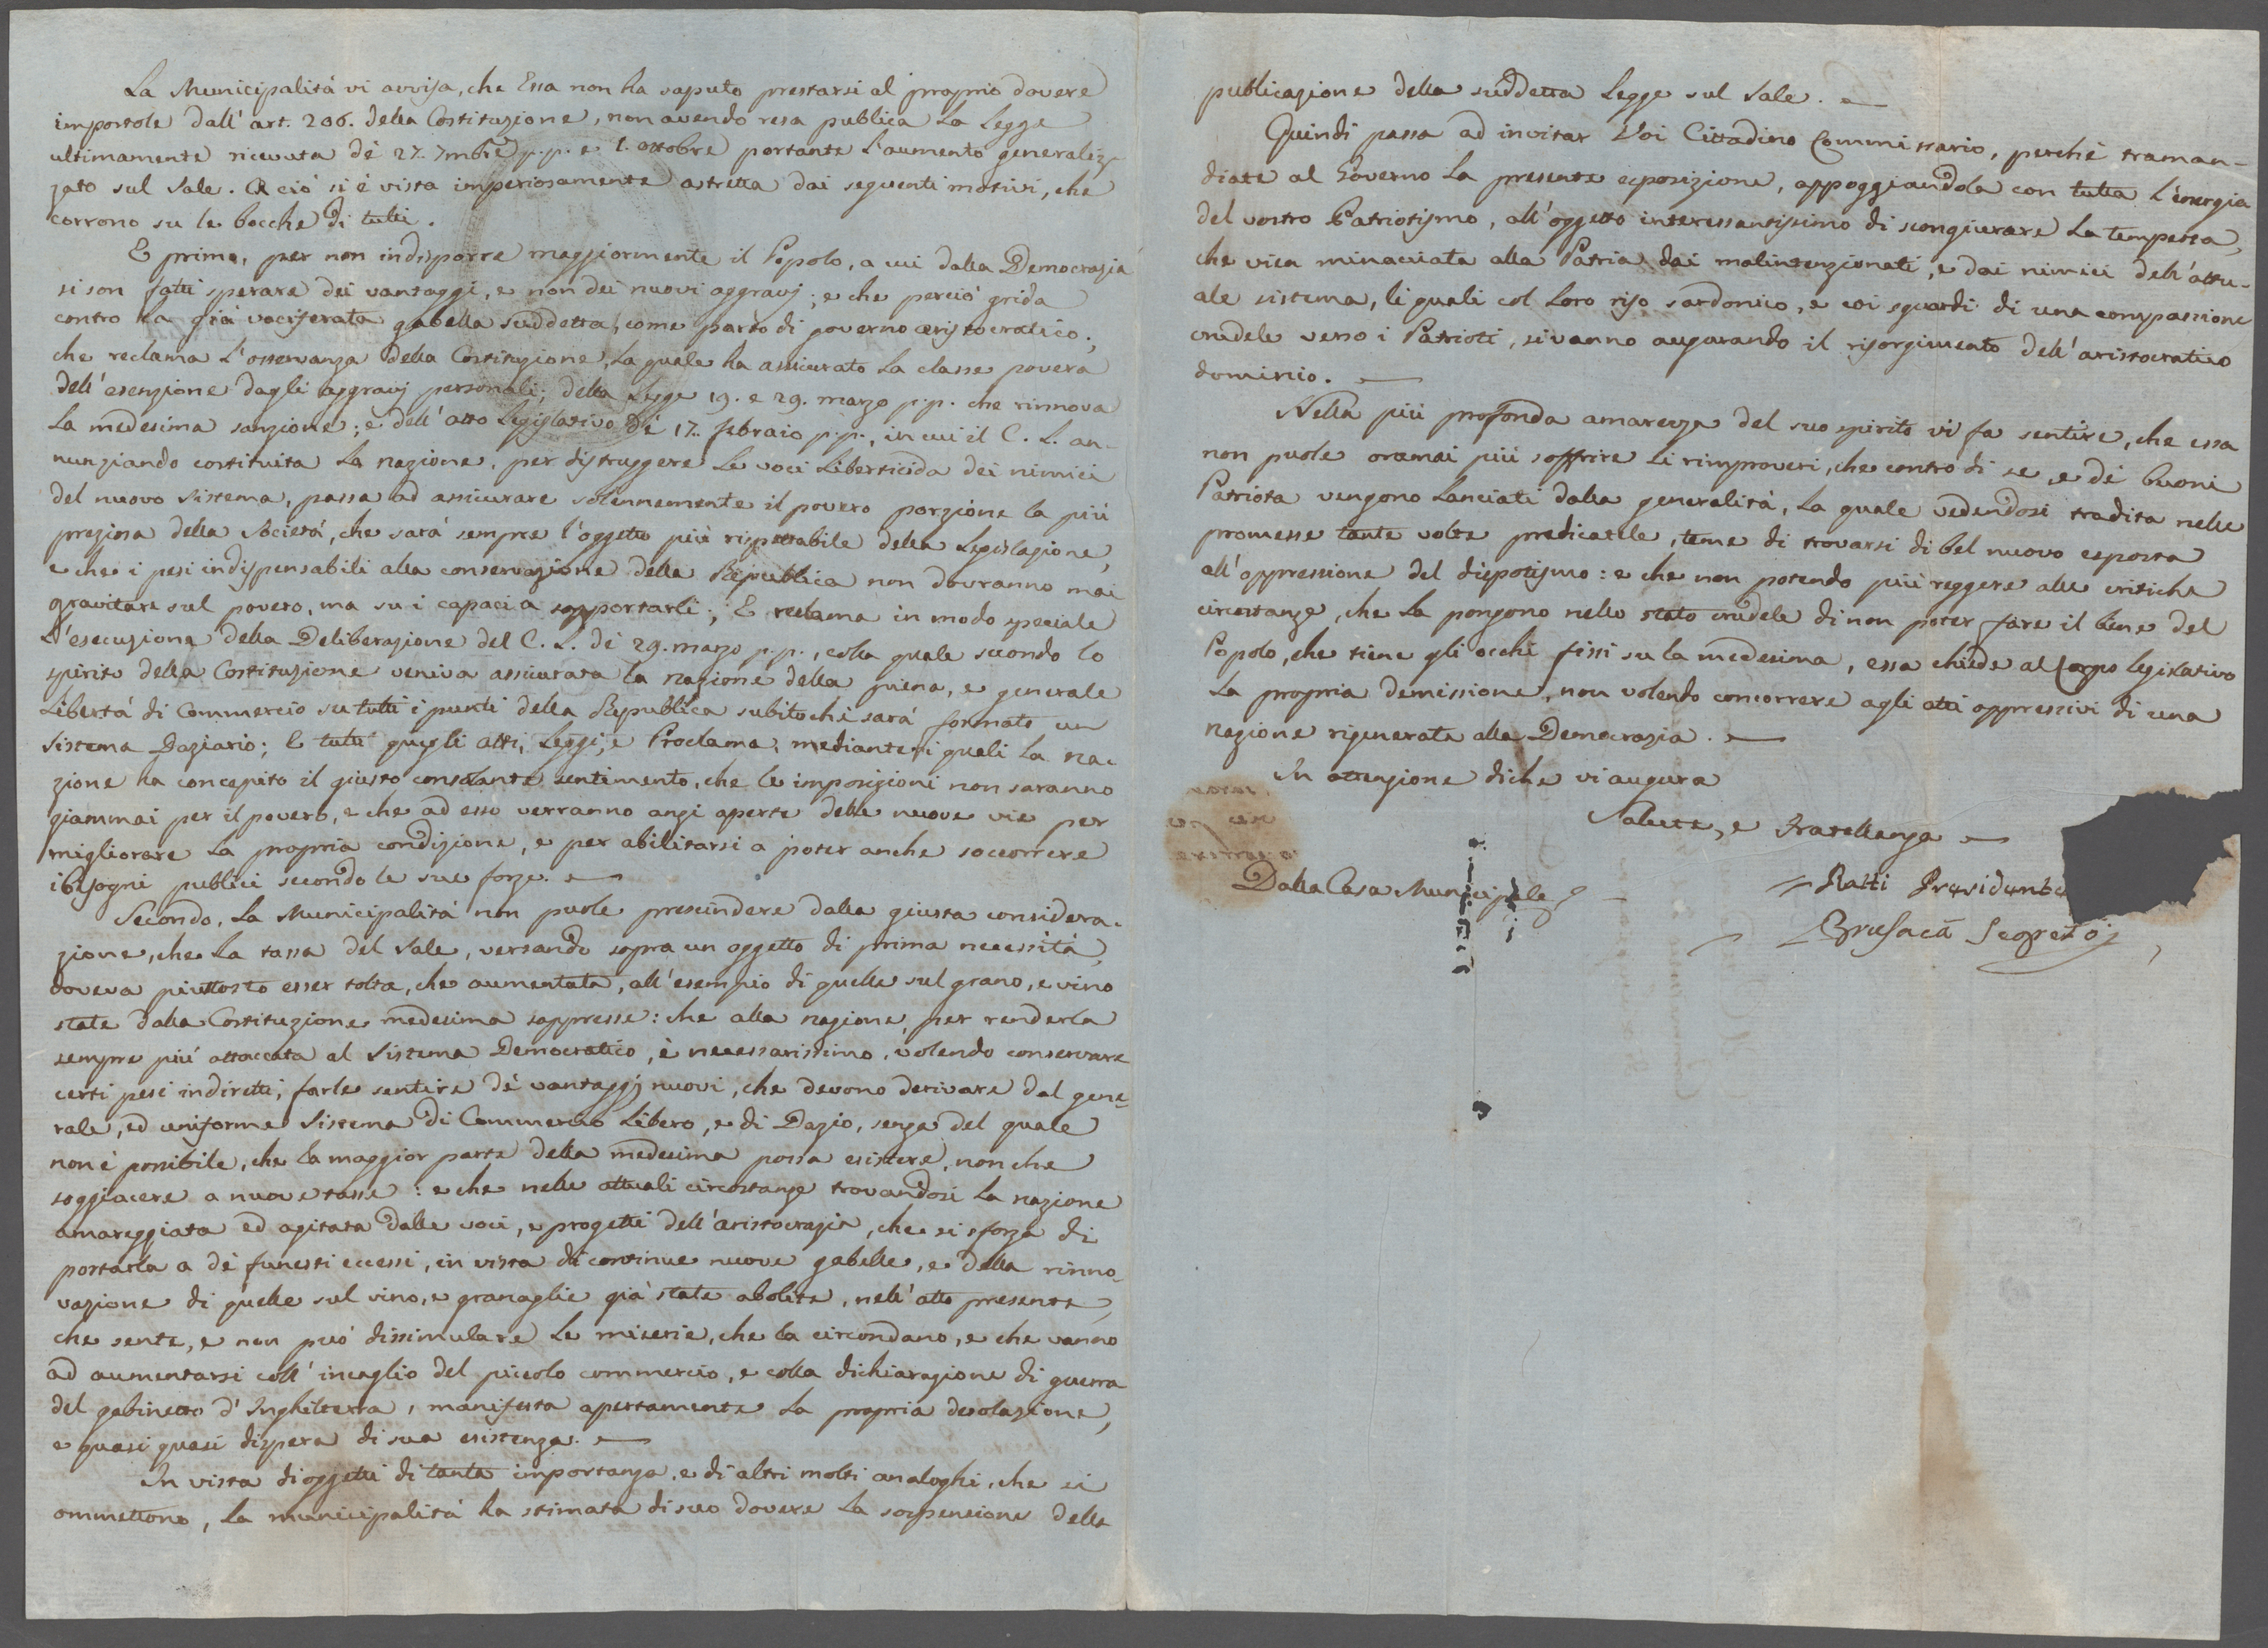 La Municipalità vi avvisa, che Essa non ha saputo prestarsi al proprio dovere
impostole dall'art. 206. della Costituzione, non avendo resa publica la Legge
ultimamente ricevuta dè 27. 7mbre p.p. e 1. ottobre portante l'aumento generaliz-
zato sul Sale. A ciò si è vista imperiosamente astretta dai seguenti motivi, che
corrono su le bocche di tutti.
E prima, per non indisporre maggiormente il Popolo, a cui dalla Democrazia
si son fatti sperare dei vantaggi, e non dei nuovi aggravj; e che perciò grida
contro la già vociferata gabella suddetta, come parto di governo aristocratico;
che reclama l'osservanza della Costituzione, la quale ha assicurato la classe povera
dell'esenzione dagli aggravj personali; della Legge 19. e 29. marzo p.p. che rinnova
la medesima sanzione; e dell'atto Legislativo dè 17. febraio p.p., in cui il C. L. an-
nunziando costituita la nazione, per distruggere le voci liberticida dei nimici
del nuovo sistema, passa ad assicurare solennemente il povero porzione la più
preziosa della Società, che sarà sempre l'oggetto più rispettabile della Legislazione,
e che i pesi indispensabili alla conservazione della Republica non dovranno mai
gravitare sul povero, ma su i capaci a sopportarli; E reclama in modo speciale
l'esecuzione della Deliberazione del C. L. dè 29. marzo p.p., colla quale secondo lo
spirito della Costituzione veniva assicurata la nazione della piena, e generale
Libertà di Commercio su tutti i punti della Republica subitochè sarà formato un
Sistema Daziario; E tutti quegli atti, Leggi, e Proclama, mediante i quali la na-
zione ha concepito il giusto consolante sentimento, che le imposizioni non saranno
giammai per il povero, e che ad esso verranno anzi aperte delle nuove vie per
migliorare la propria condizione, e per abilitarsi a poter anche soccorrere
i bisogni publici secondo le sue forze.
Secondo, la Municipalità non puole prescindere dalla giusta considera-
zione, che la tassa del Sale, versando sopra un oggetto di prima necessità,
doveva piuttosto esser tolta, che aumentata, all'esempio di quelle sul grano, e vino
state dalla Costituzione medesima soppresse: che alla nazione, per renderla
sempre più attaccata al Sistema Democratico, è necessarissimo, volendo conservare
certi pesi indiretti, farle sentire dè vantaggj nuovi, che devono derivare dal gene-
rale, ed uniforme Sistema di Commercio Libero, e di Dazio, senza del quale
non è possibile, che la maggior parte della medesima possa esistere, non che
soggiacere a nuove tasse: e che nelle attuali circostanze trovandosi la nazione
amareggiata ed agitata dalle voci, e progetti dell'aristocrazia, che si sforza di
portarla a dè funesti eccessi, in vista di continue nuove gabelle, e della rinno-
vazione di quelle sul vino, e granaglie già state abolite, nell'atto presente,
che sente, e non può dissimulare le miserie, che la circondano, e che vanno
ad aumentarsi coll'incaglio del piccolo commercio, e colla dichiarazione di guerra
del gabinetto d'Inghilterra, manifesta apertamente la propria desolazione,
e quasi quasi dispera di sua esistenza.
In vista di oggetti di tanta importanza, e di altri molti analoghi, che si
ommettono, la municipalità ha stimata di suo dovere la sospensione della
publicazione della suddetta Legge sul Sale.
Quindi passa ad invitar Voi Cittadino Commissario, perchè traman-
diate al Governo la presente esposizione, appoggiandola con tutta l'energia
del vostro Patriotismo, all'oggetto interessantissimo di scongiurare la tempesta,
che vien minacciata alla Patria dai malintenzionati, e dai nimici dell'attu-
ale sistema, li quali col loro riso sardonico, e coi sguardi di una compassione
crudele verso i Patrioti, si vanno augurando il risorgimento dell'aristocratico
dominio.
Nella più profonda amarezza del suo spirito vi fa sentire, che essa
non puole oramai più soffrire li rimproveri, che contro di se, e dè buoni
Patriota vengono lanciati dalla generalità, la quale vedendosi tradita nelle
promesse tante volte predicatele, teme di trovarsi di bel nuovo esposta
all'oppressione del dispotismo: e che non potendo più reggere alle critiche
circostanze, che la pongono nello stato crudele di non poter fare il bene del
Popolo, che tiene gli occhi fissi su la medesima, essa chiede al Corpo Legislativo
la propria demissione, non volendo concorrere agli atti oppressivi di una
Nazione rigenerata alla Democrazia.
In attenzione di che vi augura
Salute, e Fratellanza
Dalla Casa Municipale
Ratti Presidente